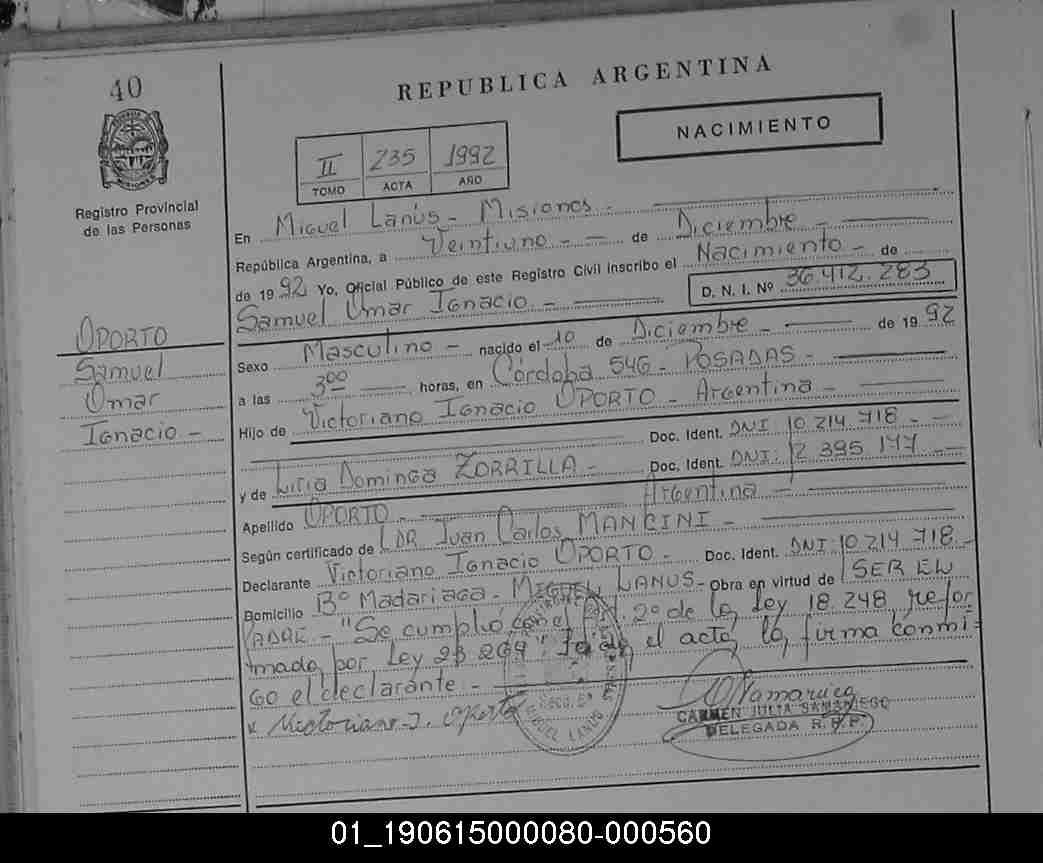 40
REPUBLICA ARGENTINA
NACIMIENTO
II 235 1992
TOMO ACTA AÑO
Registro Provincial
de las Personas
En Miguel Lanús - Misiones -
República Argentina, a Veintiuno - - de Diciembre -
de 1992 Yo, Oficial Público de este Registro Civil inscribo el Nacimiento - de
Samuel Omar Ignacio - D. N. I. Nº 36.412.283
OPORTO
Samuel
Omar
Ignacio -
Sexo Masculino - nacido el 10 de Diciembre - de 1992
a las 3:00 horas, en Córdoba 546 - POSADAS -
Hijo de Victoriano Ignacio OPORTO - Argentina -
Doc. Ident. DNI 10.214.718 -
y de Liria Dominga ZORRILLA - Doc. Ident. DNI: 12.395.177 -
Argentina -
Apellido OPORTO -
Según certificado de DR. Juan Carlos MANCINI -
Declarante Victoriano Ignacio OPORTO - Doc. Ident. DNI 10.214.718 -
Domicilio Bº Madariaga - MIGUEL LANUS - Obra en virtud de SER EL
PADRE - "Se cumplió con el Art. 2º de la Ley 18.248, refor
mada por Ley 23.264". Leída el acta, la firma conmi-
go el declarante -
x Victoriano I. Oporto
MIGUEL LANUS
CARMEN JULIA SAMANIEGO
DELEGADA R. P. P.
01_190615000080-000560